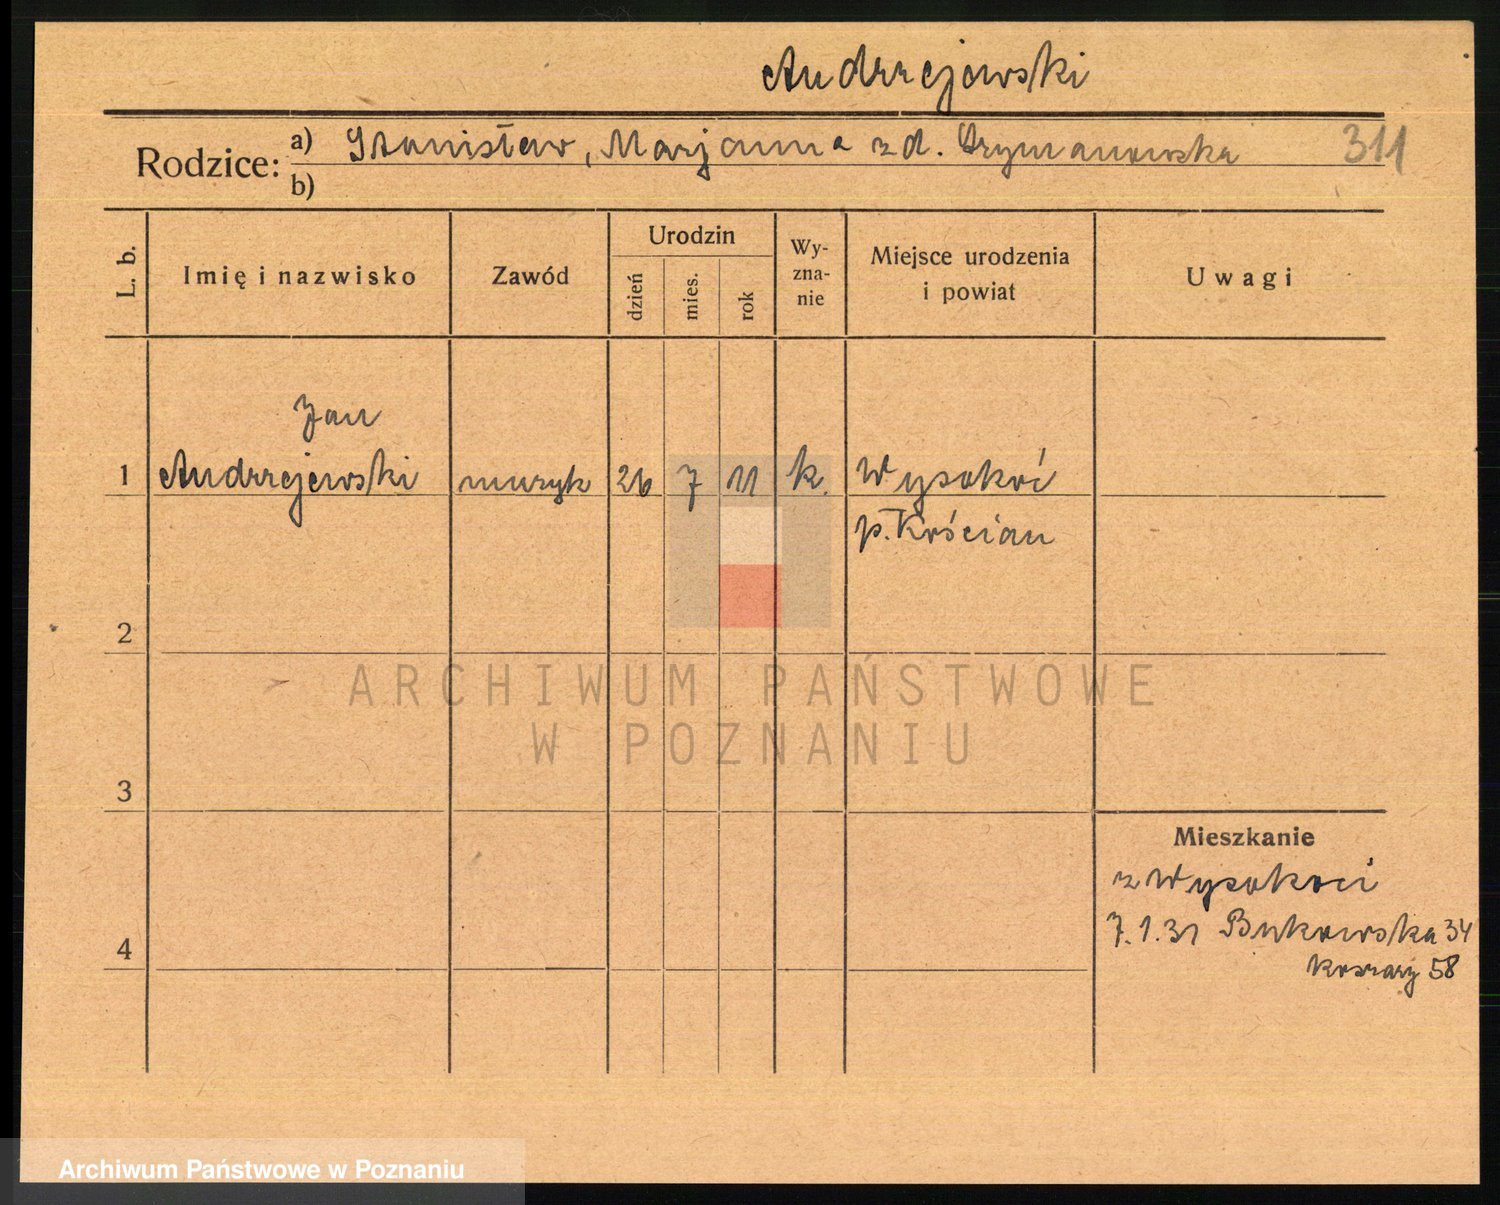 Andrzejewski
Rodzice: a) Stanisław, Marjanna z d. Szymanowska 311
b)
L. b. Imię i nazwisko Zawód Urodzin dzień mies. rok Wy-zna-nie Miejsce urodzenia i powiat Uwagi
Jan
1 Andrzejewski muzyk 26 7 11 k. Wysokoć
p. Kościan
2
ARCHIWUM PAŃSTWOWE
W POZNANIU
3
Mieszkanie
z Wysokoci
4 7.1.31 Bukowska 34
koszary 58
Archiwum Państwowe w Poznaniu